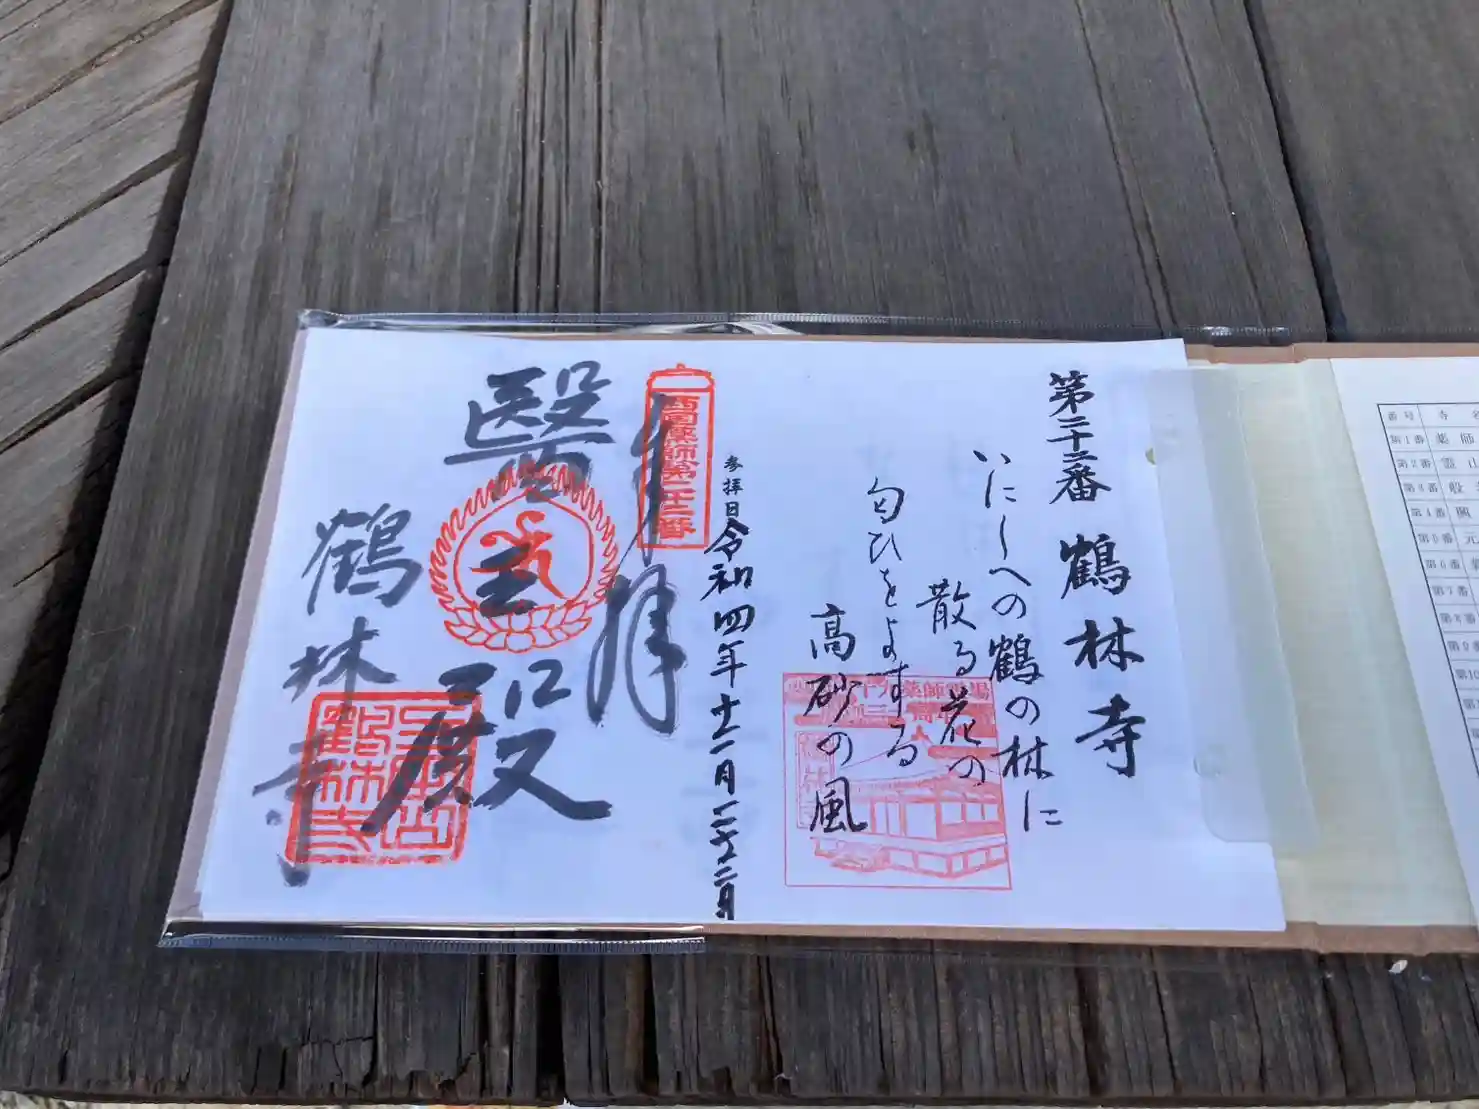 第二十二番 鶴林寺
いにしへの鶴の林に
散る花の
匂ひをよする
高砂の風
参拝日 令和四年十一月二十二日
奉拝
西国薬師第二十二番
醫王殿
鶴林寺
番号 寺名
第1番 薬師
第2番 霊山
第3番 般若
第4番
第5番 元
第6番
第7番
第8番
第9番
第10